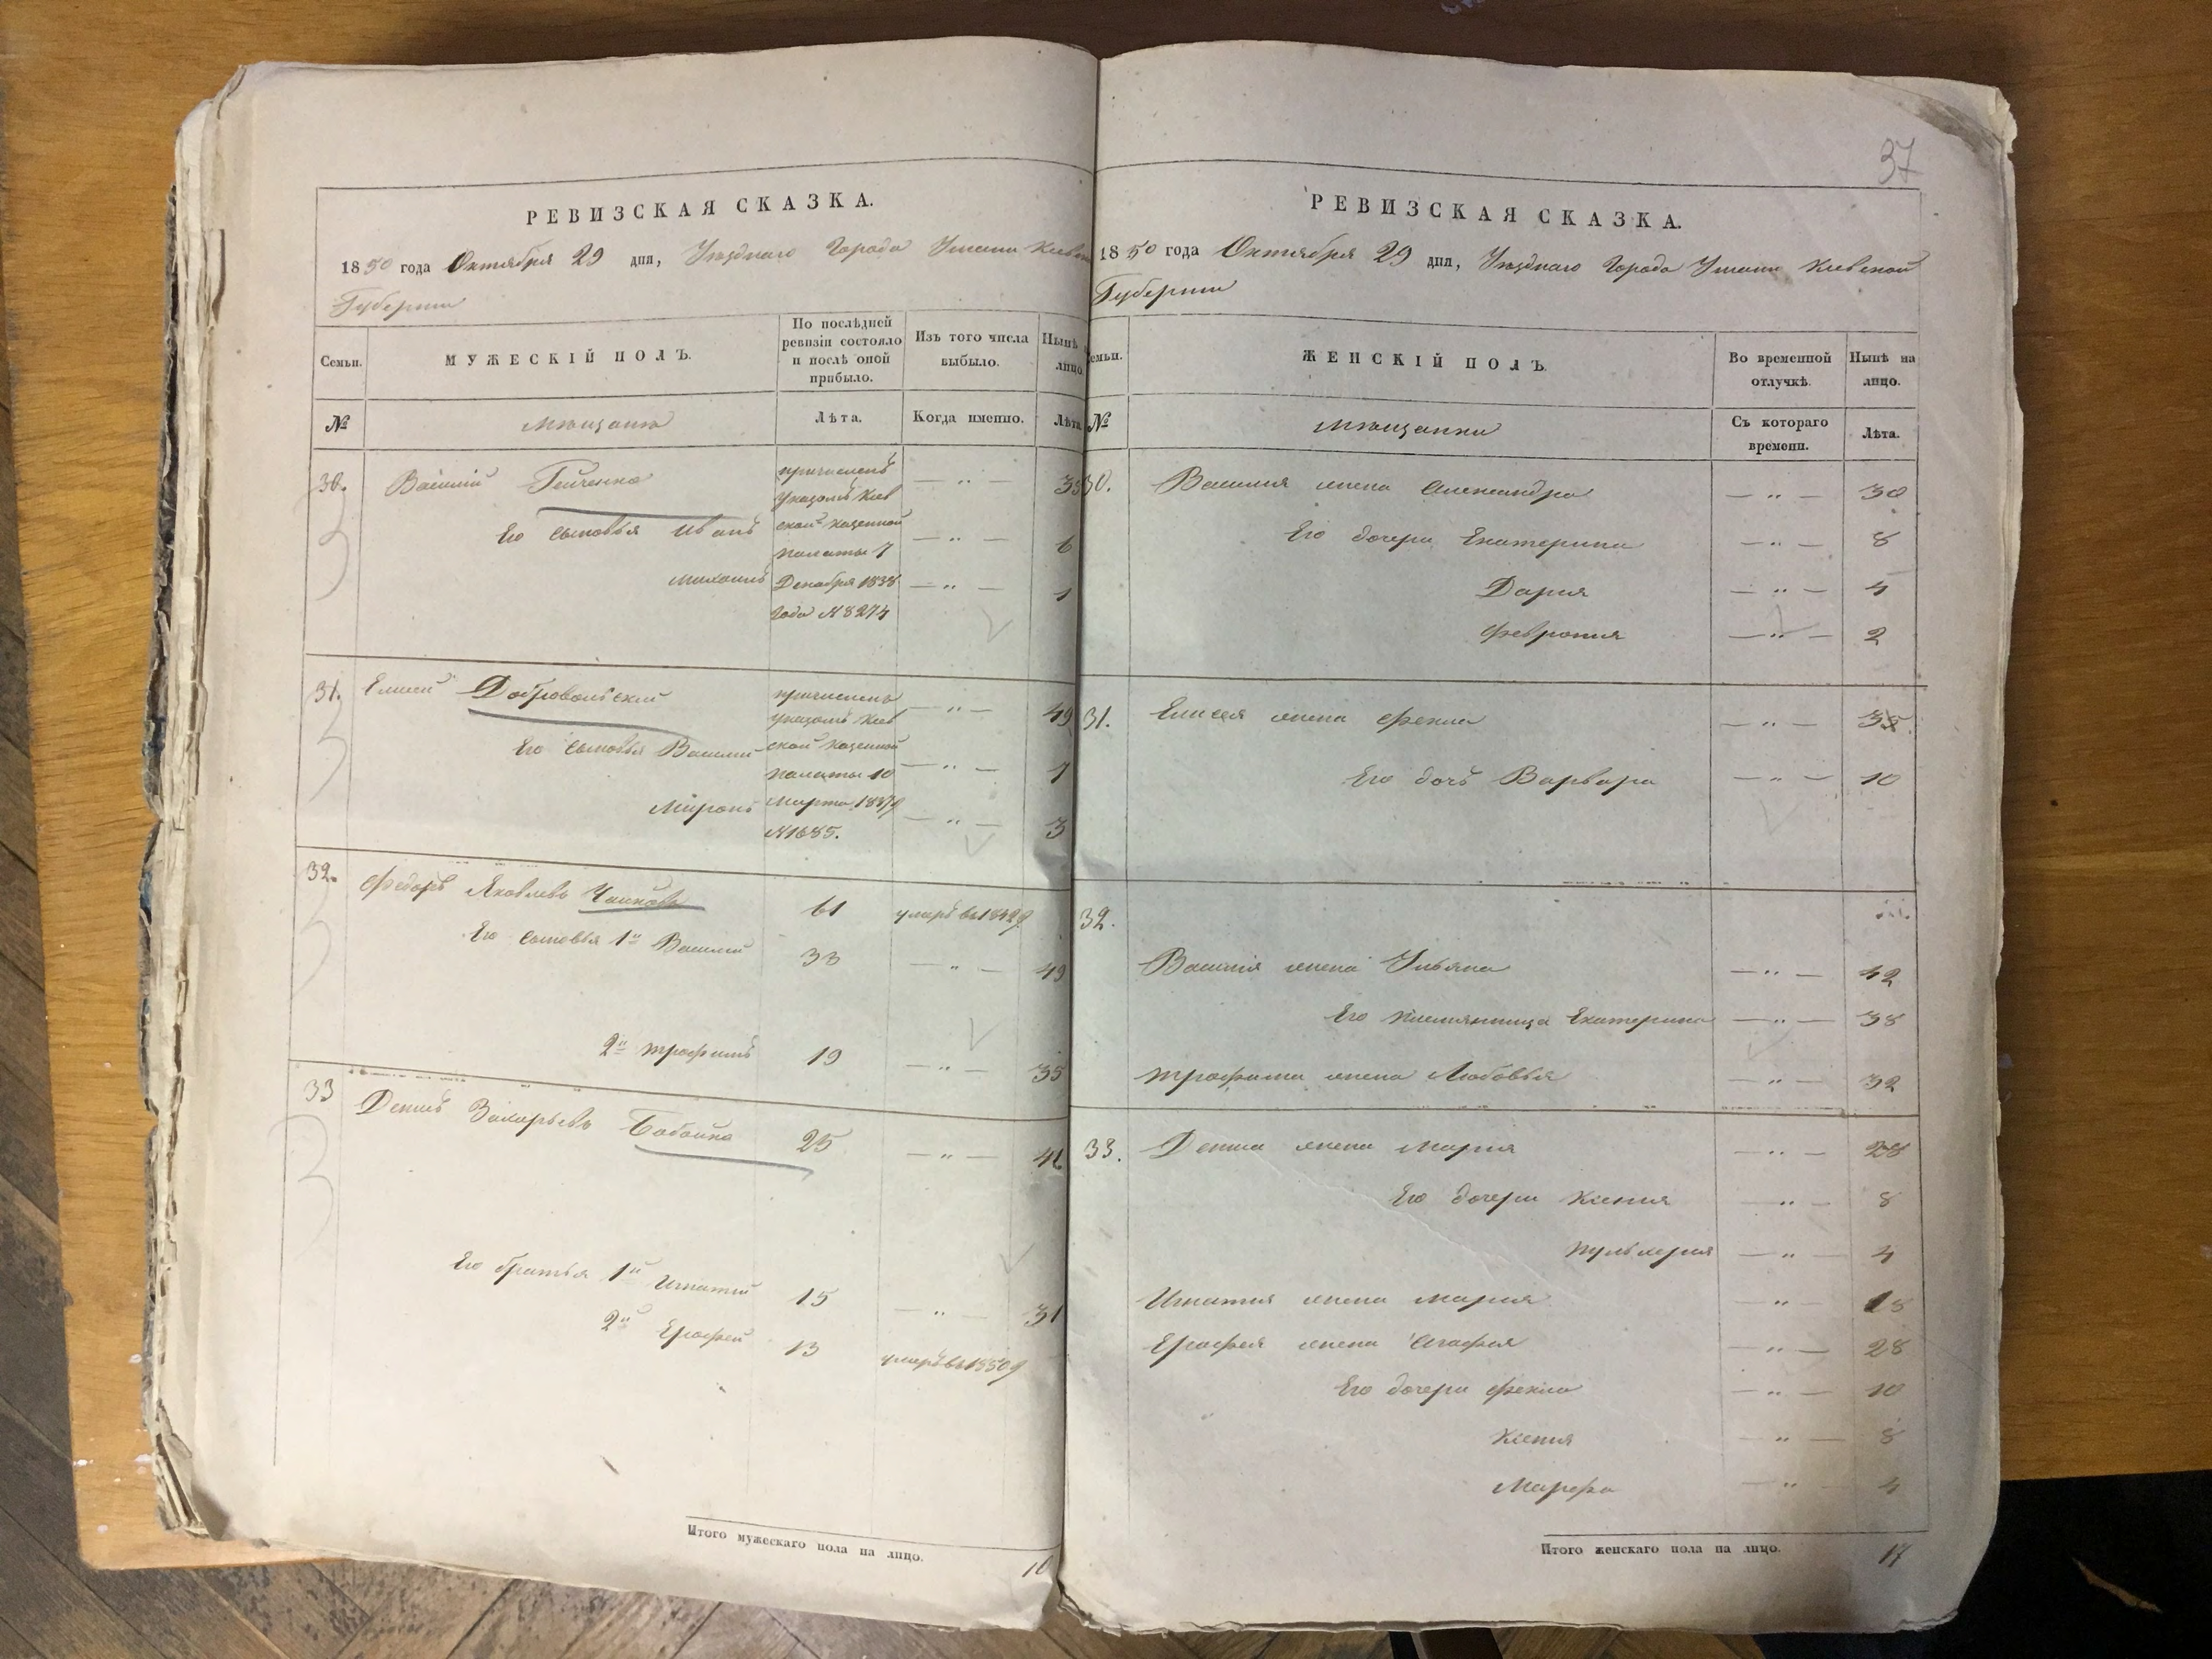 РЕВИЗСКАЯ СКАЗКА.
1850 года Октября 29 дня, Уѣзднаго Города Умани Киевской
Губернии
Семьи.
МУЖЕСКІЙ ПОЛЪ.
По послѣдней ревизіи состояло и послѣ оной прибыло.
Изъ того числа выбыло.
Нынѣ на лицо.
№
Мѣщане
Лѣта.
Когда именно.
Лѣта.
30. Василий Гейченко — " — 35
причисленъ
указомъ Киев
ской казенной
палаты 7
Декабря 1838
года №8274
Его сыновья Иванъ — " — 6
Михаилъ — " — 1
31. Елисей Добровольский — " — 49
причисленъ
указомъ Киев
ской казенной
палаты 10
Марта
№1685.
Его сыновья Василий — " — 7
Миронъ — " — 3
32. Федоръ Яковлевъ 61 умеръ въ 1842г
Его сыновья 1й Василий 33 — " — 49
2й Трофимъ 19 — " — 35
33 Денисъ Захарьевъ Бабайко 25 — " — 41
Его братья 1й Игнатий 15 — " — 31
2й Ерофей 13 умеръ въ 1850г
Итого мужескаго пола на лицо. 10
37
РЕВИЗСКАЯ СКАЗКА.
1850 года Октября 29 дня, Уѣзднаго Города Умани Киевской
Губернии
Семьи.
ЖЕНСКІЙ ПОЛЪ.
Во временной отлучкѣ.
Нынѣ на лицо.
№
Мѣщанки
Съ котораго времени.
Лѣта.
30. Василия жена Александра — " — 30
Его дочери Екатерина — " — 8
Дария — " — 4
Феврония — " — 2
31. Елисея жена Фекла — " — 35.
Его дочь Варвара — " — 10
32.
Василия жена Ульяна — " — 42
Его племянница Екатерина — " — 38
Трофима жена Любовья — " — 32
33. Дениса жена Мария — " — 28
Его дочери Ксения — " — 8
Пульхерия — " — 4
Игнатия жена Мария — " — 18
Ерофея жена Агафия — " — 28
Его дочери Фекла — " — 10
Ксения — " — 8
Марфа — " — 4
Итого женскаго пола на лицо. 17